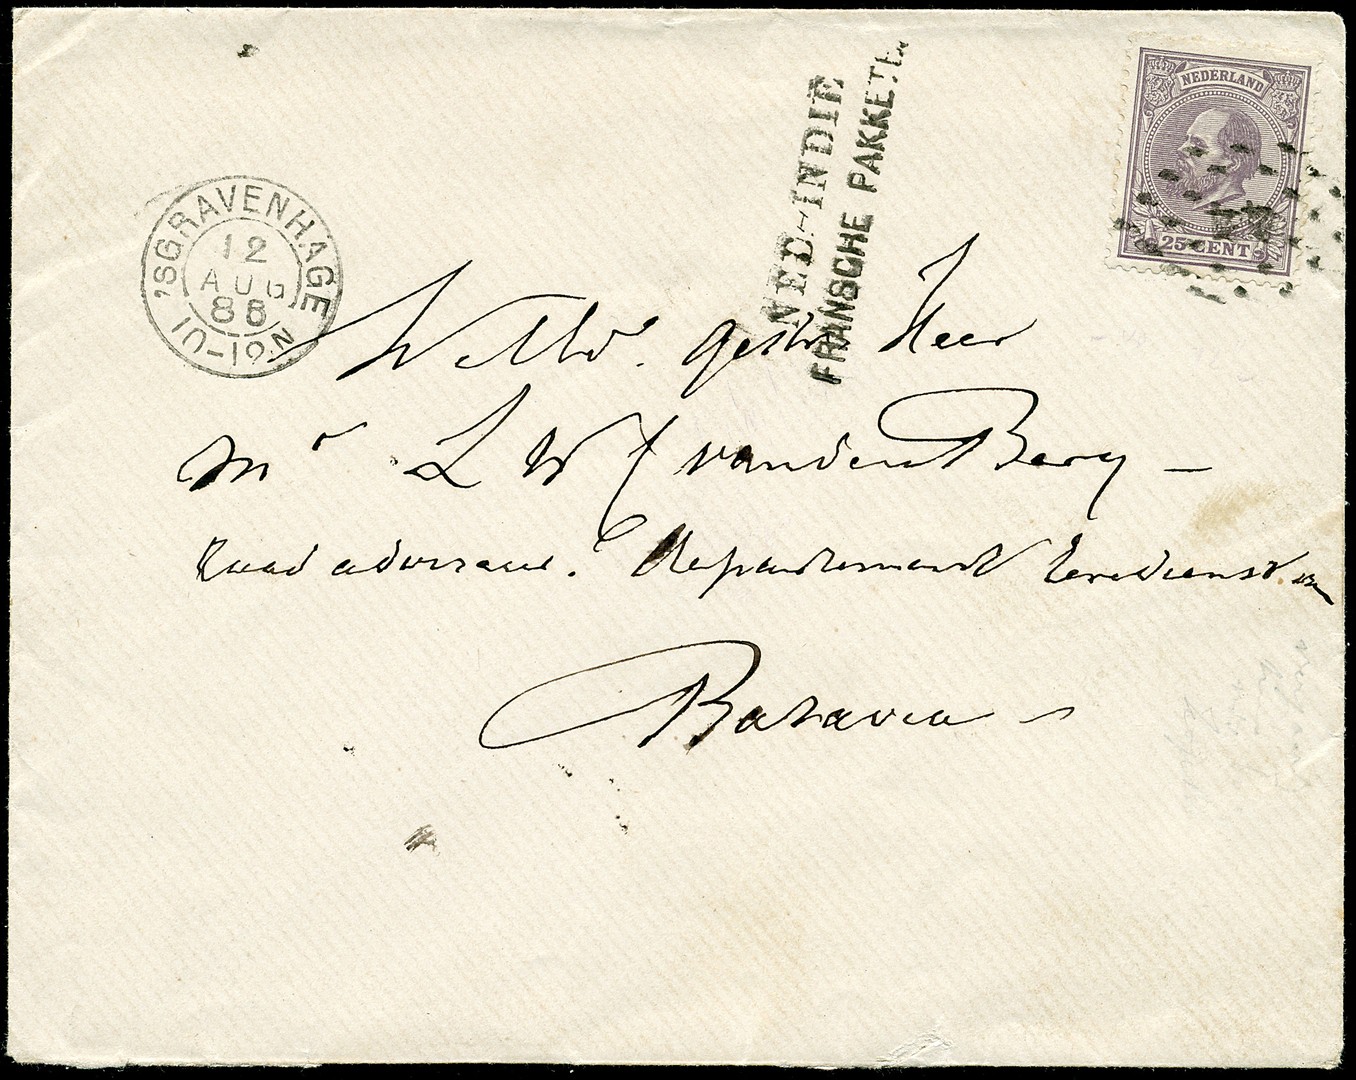 NEDERLAND
25 CENT
NED-INDIE
FRANSCHE PAKKETB.
'SGRAVENHAGE
12
AUG
88
10-12N
Heer
Mr L W C van den Berg -
Raad adviseur. Departement Eeredienst en
Batavia -